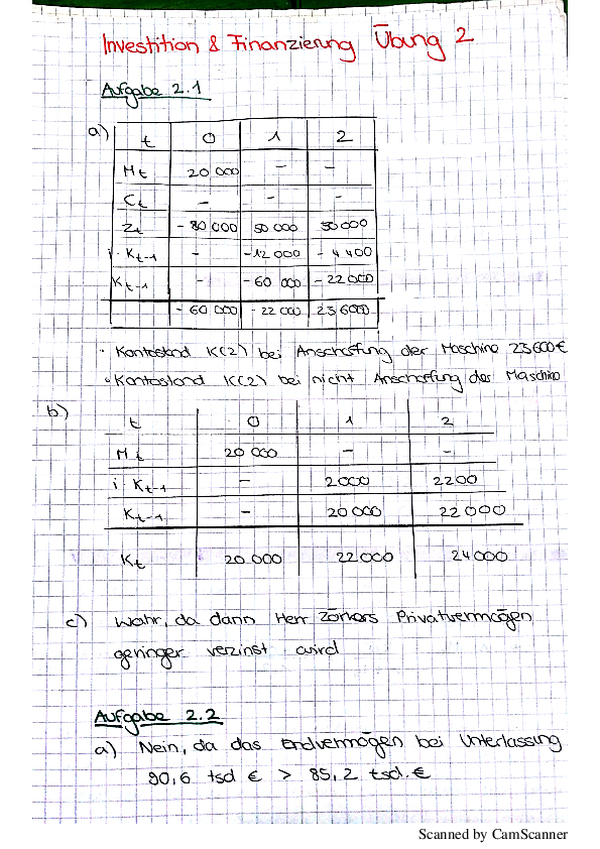 Investition & Finanzierung Übung 2
Aufgabe 2.1
a)
t 0 1 2
Mt 20 000 – –
Ct – – –
Zt - 80 000 50 000 50 000
i · Kt-1 – -12 000 - 4 400
Kt-1 – - 60 000 - 22 000
- 60 000 - 22 000 23 6000
· Kontostand K(2) bei Anschaffung der Maschine 23 600 €
· Kontostand K(2) bei nicht Anschaffung der Maschine
b)
t 0 1 2
Mt 20 000 – –
i · Kt-1 – 2000 2200
Kt-1 – 20 000 22 000
Kt 20 000 22 000 24 000
c) Wahr, da dann Herr Privatvermögen
geringer verzinst wird
Aufgabe 2.2
a) Nein, da das Endvermögen bei Unterlassung
90,6 tsd € > 85,2 tsd. €
Scanned by CamScanner